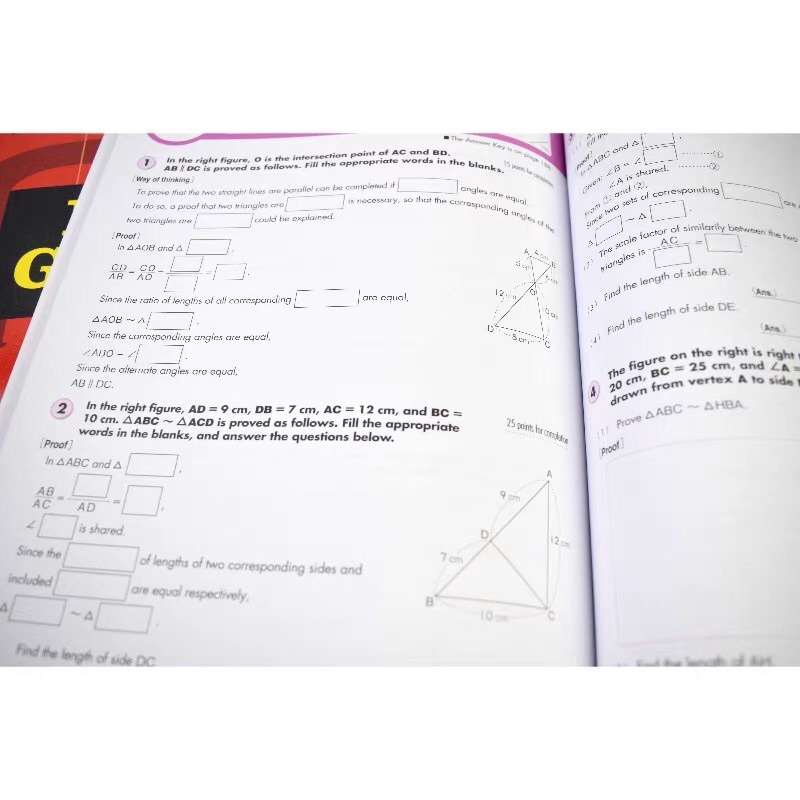 G
■ The Answer Key is on page 188
1
In the right figure, O is the intersection point of AC and BD.
AB ∥ DC is proved as follows. Fill the appropriate words in the blanks.
15 points for completion
[Way of thinking]
To prove that the two straight lines are parallel can be completed if angles are equal.
To do so, a proof that two triangles are is necessary, so that the corresponding angles of the
two triangles are could be explained.
[Proof]
In △AOB and △ ,
CD/AB = CO/AO = / = .
Since the ratio of lengths of all corresponding are equal,
△AOB ~ △ .
Since the corresponding angles are equal,
∠ABO = ∠ .
Since the alternate angles are equal,
AB ∥ DC.
A 4 cm B
O
12
D 8 cm C
2
In the right figure, AD = 9 cm, DB = 7 cm, AC = 12 cm, and BC =
10 cm. △ABC ~ △ACD is proved as follows. Fill the appropriate
words in the blanks, and answer the questions below.
25 points for completion
[Proof]
In △ABC and △ ,
AB/AC = /AD = ,
∠ is shared.
Since the of lengths of two corresponding sides and
included are equal respectively,
△ ~ △ .
Find the length of side DC.
A
9 cm
D
12 cm
7 cm
B
10 cm
C
[Proof]
In △ABC and △
Given ∠B = ∠ ①
∠A is shared. ②
From ① and ②,
Since two sets of corresponding are
△ ~ △ .
(2) The scale factor of similarity between the two
triangles is AC/ = .
(3) Find the length of side AB.
(Ans.)
(4) Find the length of side DE.
(Ans.)
4
The figure on the right is right
20 cm, BC = 25 cm, and ∠A =
drawn from vertex A to side
(1) Prove △ABC ~ △HBA.
[Proof]
Find the length of